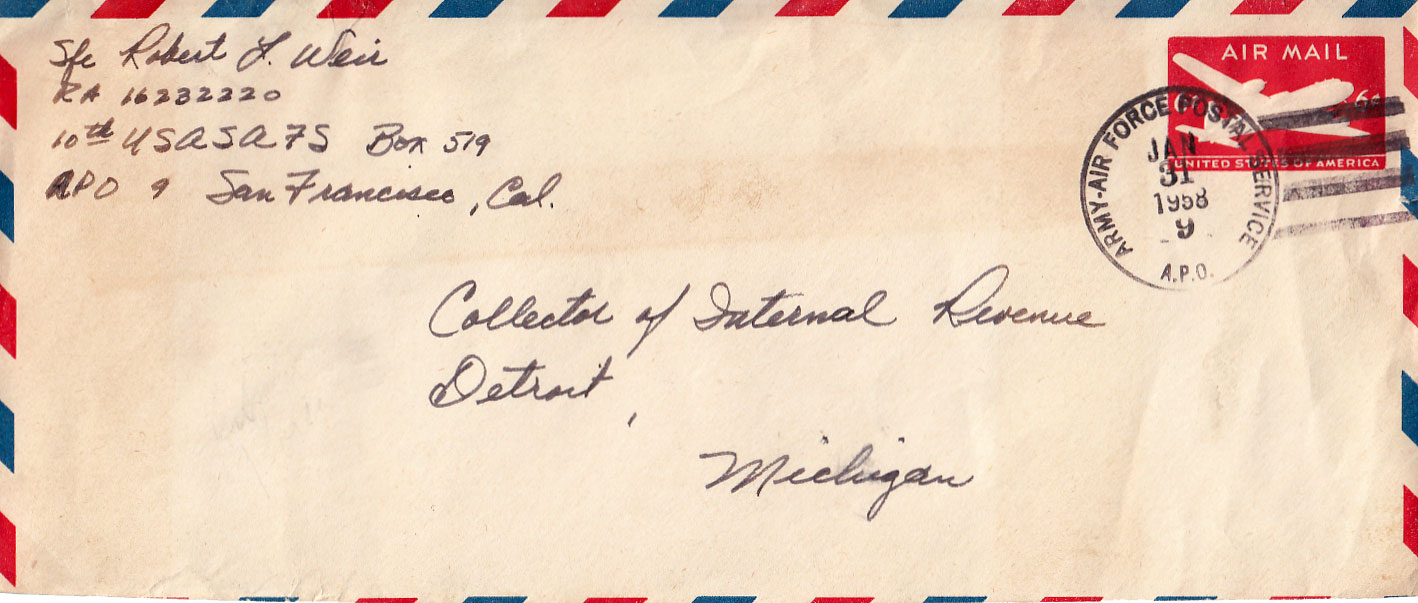 Sfc Robert L. Weir
RA 16232220
10th USASAFS Box 519
APO 9 San Francisco, Cal.
AIR MAIL
6¢ 6¢
UNITED STATES OF AMERICA
ARMY-AIR FORCE POSTAL SERVICE
JAN
31
1958
9
A.P.O.
Collector of Internal Revenue
Detroit,
Michigan